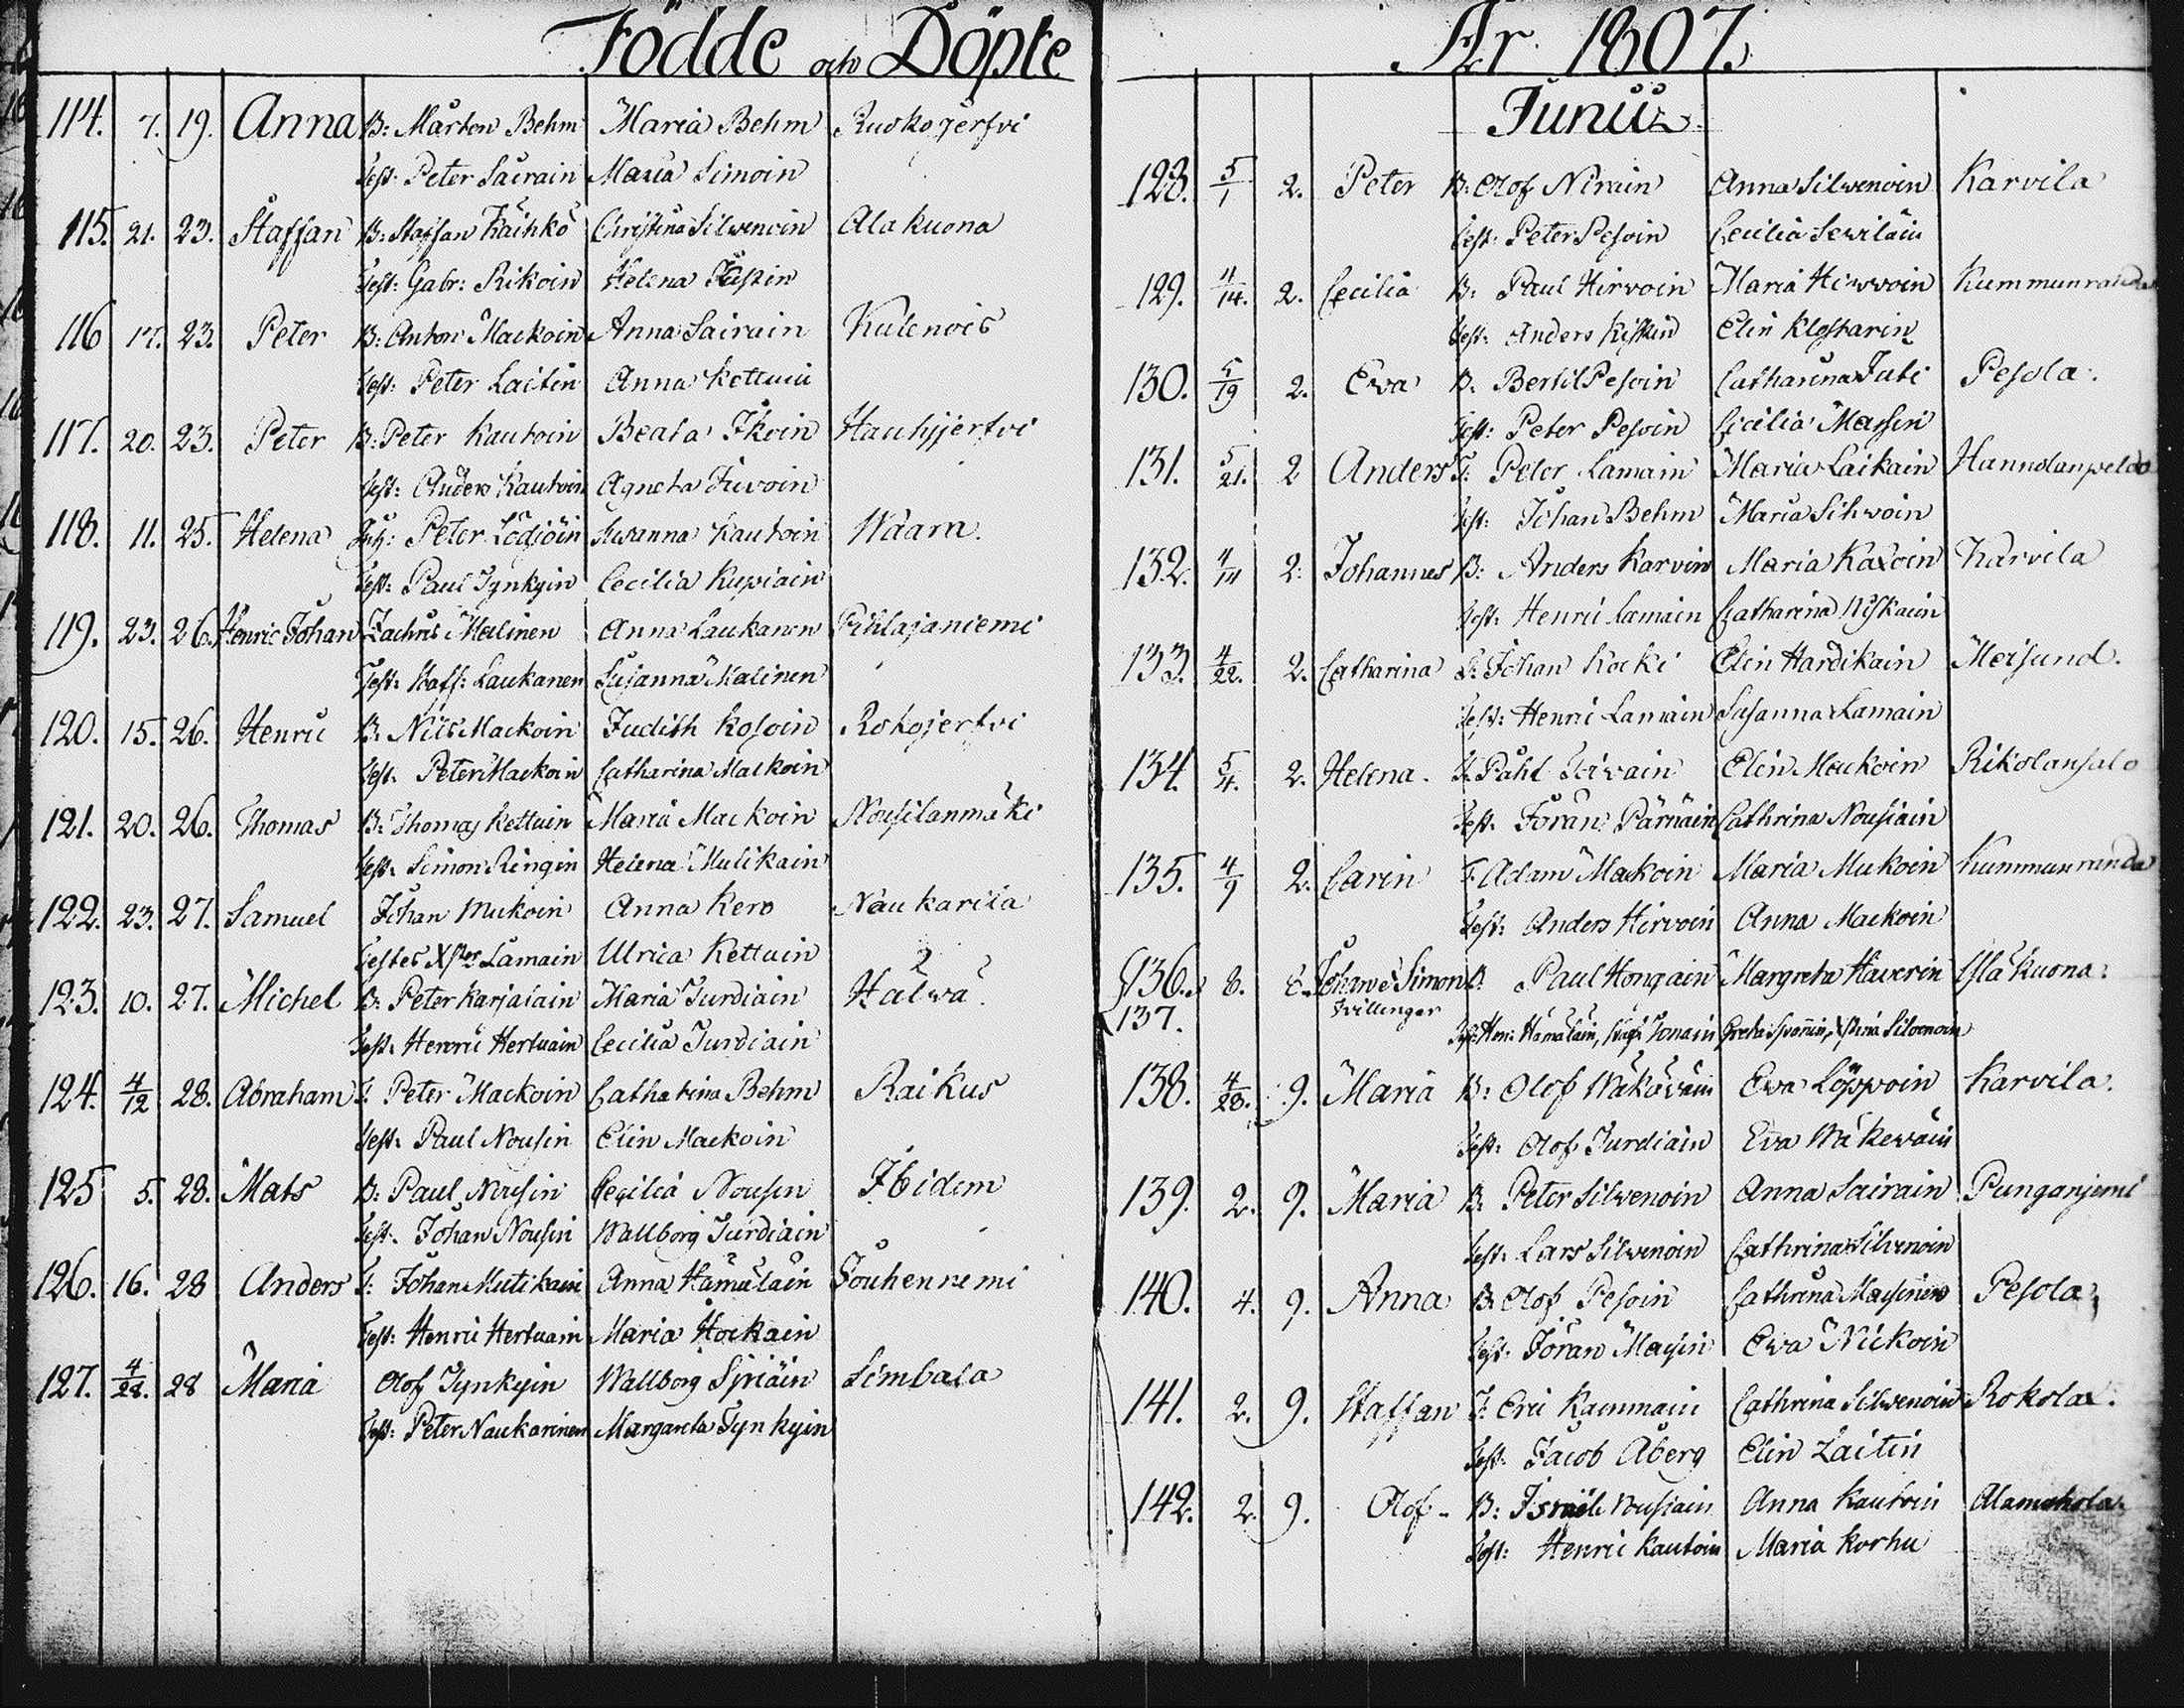 Födde och Döpte
114. 7. 19. Anna B: Mårten Behm Maria Behm Ruokojerfvi
Test: Peter Sairain Maria Simoin
115. 21. 23. Staffan B: Staffan Käihkö Christina Silvenoin Ala kuona
Test: Gabr: Rikoin Helena
116 17. 23. Peter B: Anton Mackoin Anna Sairain Kulenois
Test: Peter Laitin Anna Kettuin
117. 20. 23. Peter B: Peter Kautoin Beata Ikoin Hauhjjerfvi
Test: Anders Kautoin Agneta Juvoin
118. 11. 25. Helena Inh: Peter Lödjöin Susanna Kautoin Waara.
Test: Paul Tynkyin Cecilia Kupiain
119. 23. 26. Henric Johan Zachris Malinen Anna Laukanen Pihlajaniemi
Test: Staff: Laukanen Susanna Malinen
120. 15. 26. Henric B. Nils Mackoin Judith Kosoin Rokojerfvi
Test. Peter Mackoin Catharina Mackoin
121. 20. 26. Thomas B. Thomas Kettuin Maria Mackoin Nousilanmäki
Test. Simon Ringin Helena Mulikain
122. 23. 27. Samuel Johan Mukoin Anna Kero Naukarila
Testes Xster Lamain Ulrica Kettuin
123. 10. 27. Michel B. Peter Karjalain Maria Turdiain Halwa.
Test. Henric Hertuain Cecilia Turdiain
124. 4/12 28. Abraham T. Peter Mackoin Catharina Behm Raikus
Test. Paul Nousin Elin Mackoin
125 5. 28. Mats B: Paul Nousin Cecilia Nousin Ibidem
Test. Johan Nousin Wallborg Turdiain
126. 16. 28 Anders T: Johan Mutikain Anna Hämäläin Jouhennemi
Test: Henric Hertuain Maria Hockain
127. 4/28. 28 Maria Olof Tynkyin Wallborg Simbala
Test: Peter Naukarinen Margareta Tynkyin
År 1807.
Junii.
128. 5/1 2. Peter B: Olof Nirain Anna Silvenoin Karvila
Test: Peter Pesoin Cecilia Seviläin
129. 4/14. 2. Cecilia B. Paul Hirvoin Maria Hirvvoin Kummunranda
Test: Anders Kiskin Elin Klostarin
130. 5/19 2. Eva B. Bertil Pesoin Catharina Juti Pesola.
Test: Peter Pesoin Cicilia Massin
131. 5/21. 2 Anders T: Peter Lamain Maria Laikain Hannolanpeldo
Test: Johan Behm Maria Silvoin
132. 4/14 2: Johannes B: Anders Karvin Maria Kaxoin Karvila
Test: Henric Lamain Catharina Niskain
133. 4/22. 2. Catharina Johan Kocki Elin Hardikain Moisund.
Test: Henric Lamain Susanna Lamain
134. 5/4. 2. Helena. Påhl Elin Mackoin Rikolansalo
Test. Jöran Pärnäin Cathrina Nousiain
135. 4/9 2. Carin T. Adam Mackoin Maria Mukoin Kummunranda
Test: Anders Hirvoin Anna Mackoin
136. 8. 8. Johan & Simon B Paul Hongain Margreta Häverin Yläkuona.
137. Tvillingar
Test: Hen: Hämäläin, Staf: Tomain Greta Xstina Silvenoin
138. 4/28. 9. Maria B: Olof Wäkäväin Eva Löppoin Karvila.
Test: Olof Turdiain Eva Wäkeväin
139. 2. 9. Maria B. Peter Silvenoin Anna Sairain Punganjemi
Test: Lars Silvenoin Cathrina Silvenoin
140. 4. 9. Anna B: Olof Pesoin Cathrina Masinen Pesola,
Test: Jöran Masin Eva Nickoin
141. 2. 9. Staffan T. Eric Kammain Cathrina Silvenoin Rokola.
Test: Jacob Åberg Elin Laitin
142. 2. 9. Olof - B: Israël Nousiain Anna Kautoin
Test: Henric Kautoin Maria Korhu